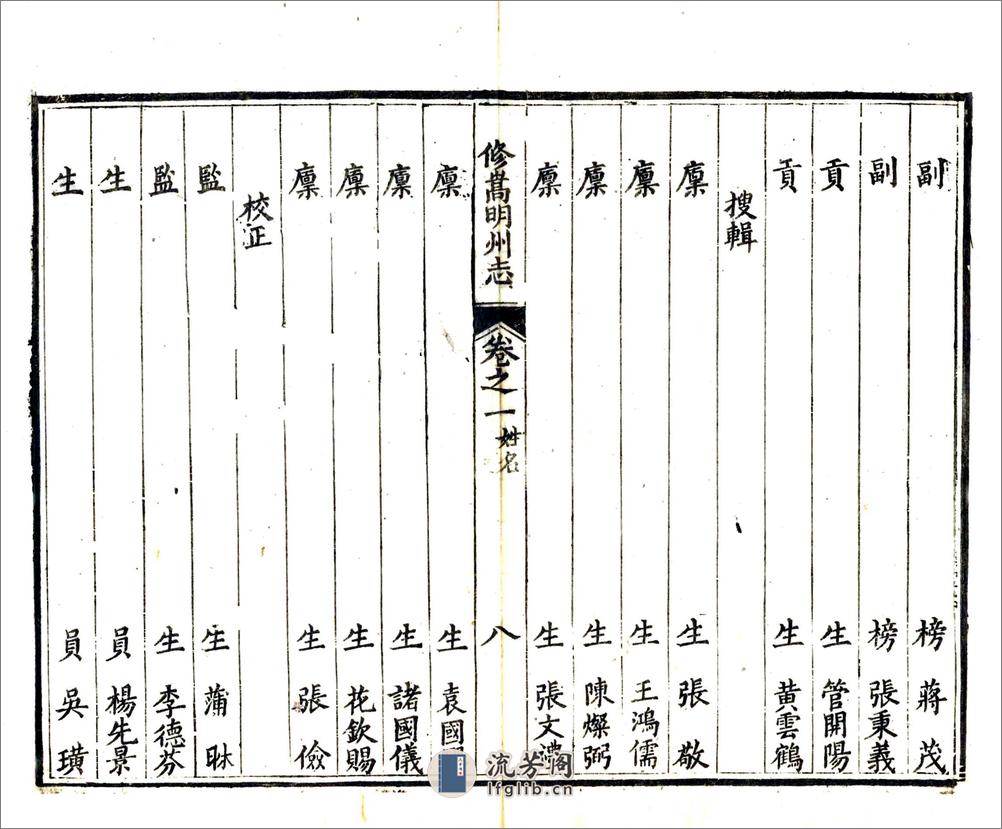 副榜蔣茂
副榜張秉義
貢生管開陽
貢生黄雲鶴
搜輯
廪生張敬
廪生王鴻儒
廪生陳燦弼
廪生張文
修嵩明州志
卷之一姓名
八
廪生袁國
廪生諸國儀
廪生花欽賜
廪生張儉
校正
監生蒲
監生李德芬
生員楊先景
生員吳璜
流芳阁
lfglib.cn